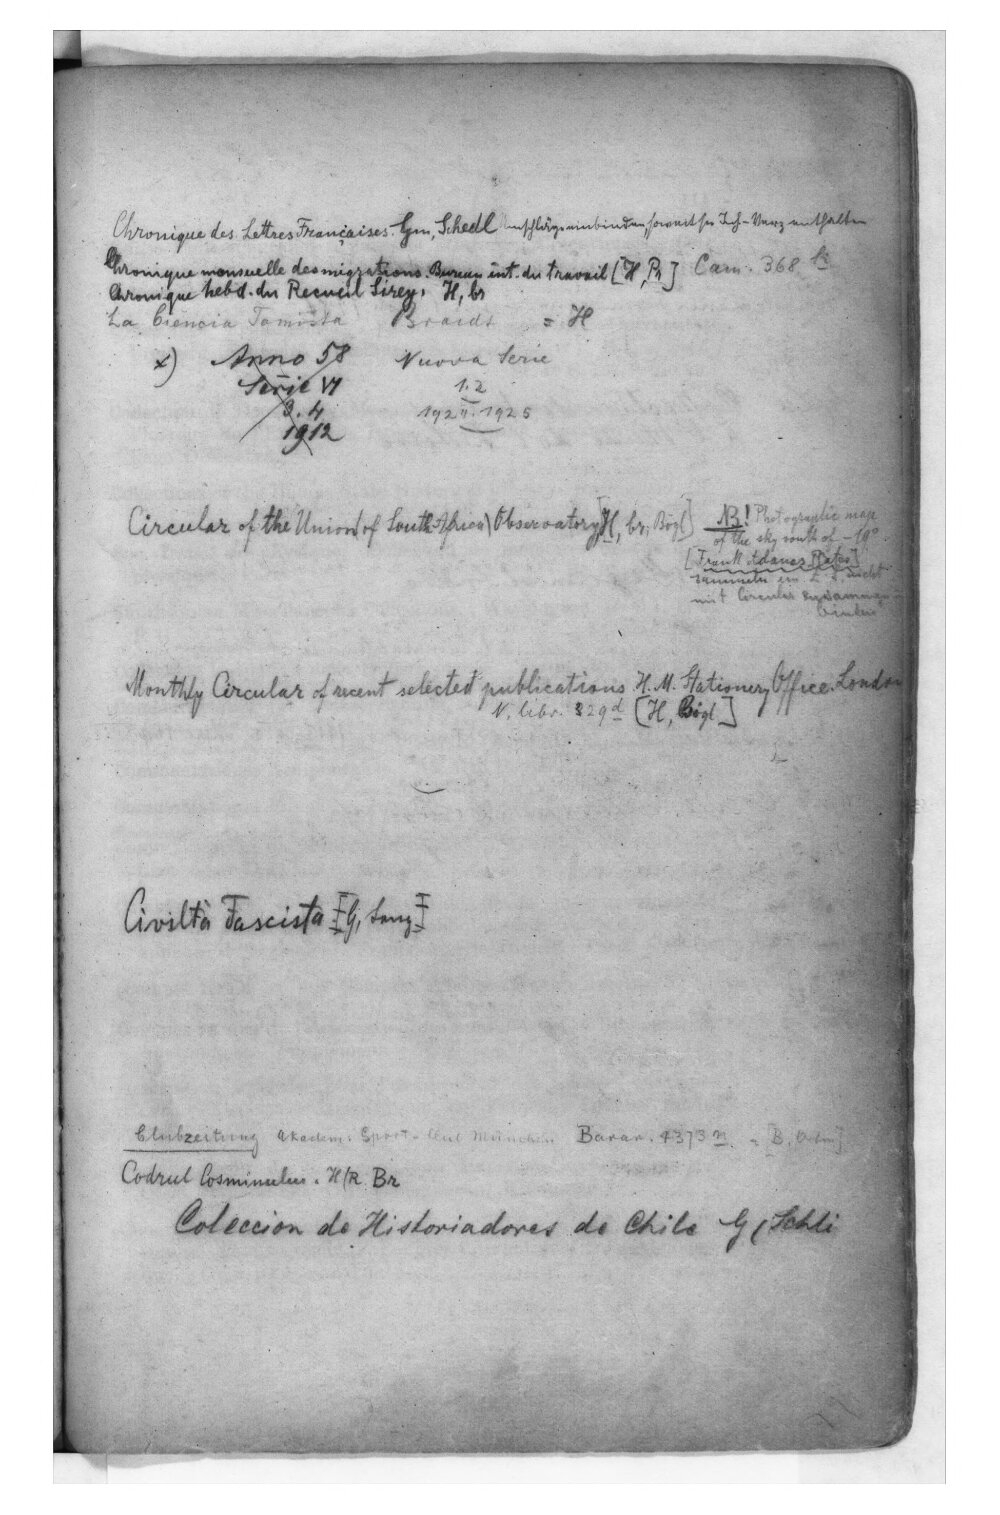 Chronique des Lettres Françaises Gm, Schedl Umschläge einbinden soweit sie Inh-Verz enthalten
Chronique mensuelle des migrations. Bureau int. du travail [H, Br] Cam. 368
Chronique hebd. du Recueil Sirey. H, br
La Ciencia Tomista Braidt = H
x) Anno 58 Nuova Serie
Serie VI 1.2
3.4 1924.1925
1912
Circular of the Union (of South Africa) Observatory [H, br, Bögl] NB! Photographic map
of the sky south of -19°
[Frank Adams Bates]
sammeln im Z. S. nicht
mit Circular zusammen
binden
Monthly Circular of recent selected publications H. M. Stationery Office. London
N. libr. 329d [H, Bögl]
Civiltà Fascista [G, Lang]
Clubzeitung Akadem. Sport-Club München. Bavar. 4373 n = [B,
Codrul Cosminului. H/R Br
Coleccion de Historiadores de Chile G, Schli